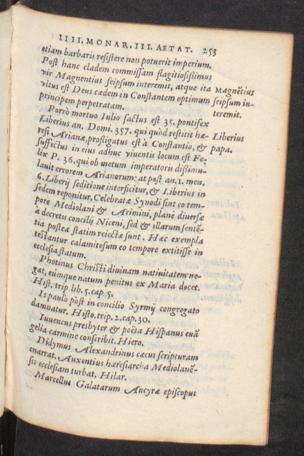 IIII. MONAR. III. AETAT. 253
etiam barbaris resistere non potuerit imperium.
Post hanc cladem commissam flagitiosissimus
vir Magnentius seipsum interemit, atque ita Magnētius
vltus est Deus cædem in Constantem optimum seipsum in-
principem perpetratam. teremit.
Porrò mortuo Iulio factus est 35. pontifex
Liberius an. Domi. 357. qui quòd restitit hæ- Liberius
resi Arianæ, profligatus est à Constantio, & papa.
suffectus in eius adhuc viuentis locum est Fe-
lix P. 36. qui ob metum imperatoris dissimu-
lauit errorem Arianorum: at post an. 1. men.
6. Liberij seditione interficitur, & Liberius in
sedem reponitur. Celebratæ Synodi sunt eo tem-
pore Mediolani & Arimini, planè diuersæ
à decretis concilij Niceni, sed & illarum sentē-
tiæ postea statim reiectæ sunt. Hæc exempla
testantur calamitosum eo tempore extitisse in
ecclesia statum.
Photinus Christi diuinam natiuitatem ne-
gat, eumque natum penitus ex Maria docet.
Hist. trip. lib. 5. cap. 5.
Is paulò pòst in concilio Syrmij congregato
damnatur. Histo. trip. 2. cap. 30.
Iuuencus presbyter & poëta Hispanus euā
gelia carmine conscribit. Hiero.
Didymus Alexandrinus cæcus scripturam
enarrat. Auxentius hæresiarcha Mediolanē-
sis ecclesiam turbat. Hilar.
Marcellus Galatarum Ancyræ episcopus